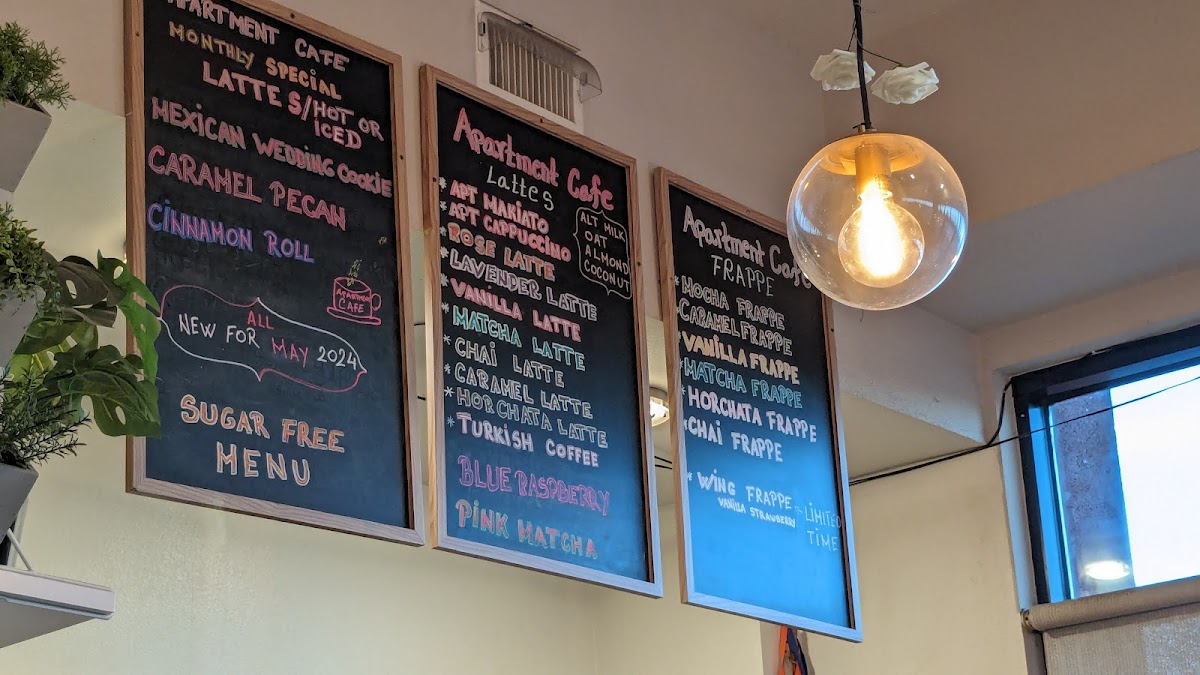 APARTMENT CAFE
MONTHLY SPECIAL
LATTE S/HOT OR
ICED
MEXICAN WEDDING COOKIE
CARAMEL PECAN
CINNAMON ROLL
APARTMENT
CAFE
ALL
NEW FOR MAY 2024
SUGAR FREE
MENU
Apartment Cafe
Lattes
* APT MAKIATO
* APT CAPPUCCINO
* ROSE LATTE
* LAVENDER LATTE
* VANILLA LATTE
* MATCHA LATTE
* CHAI LATTE
* CARAMEL LATTE
* HORCHATA LATTE
* TURKISH COFFEE
BLUE RASPBERRY
PINK MATCHA
ALT MILK
OAT
ALMOND
COCONUT
Apartment Cafe
FRAPPE
* MOCHA FRAPPE
* CARAMEL FRAPPE
* VANILLA FRAPPE
* MATCHA FRAPPE
* HORCHATA FRAPPE
* CHAI FRAPPE
* WING FRAPPE - LIMITED
VANILLA STRAWBERRY
TIME